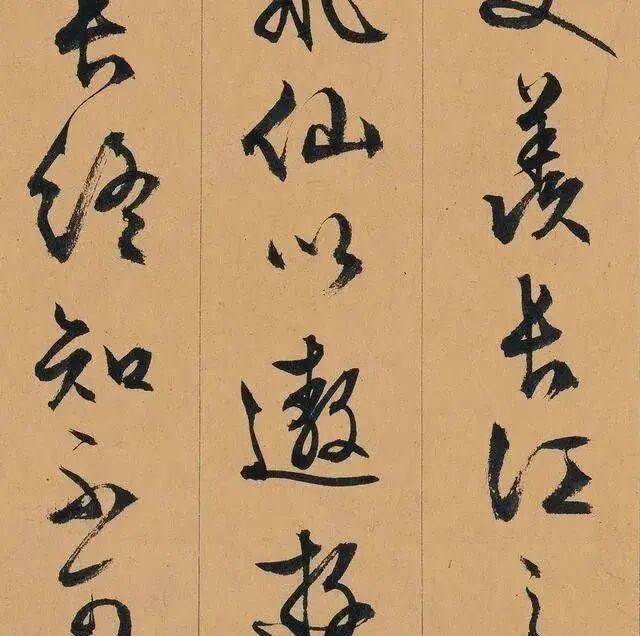 臾羨長江之
飛仙以遨遊
長終知不可